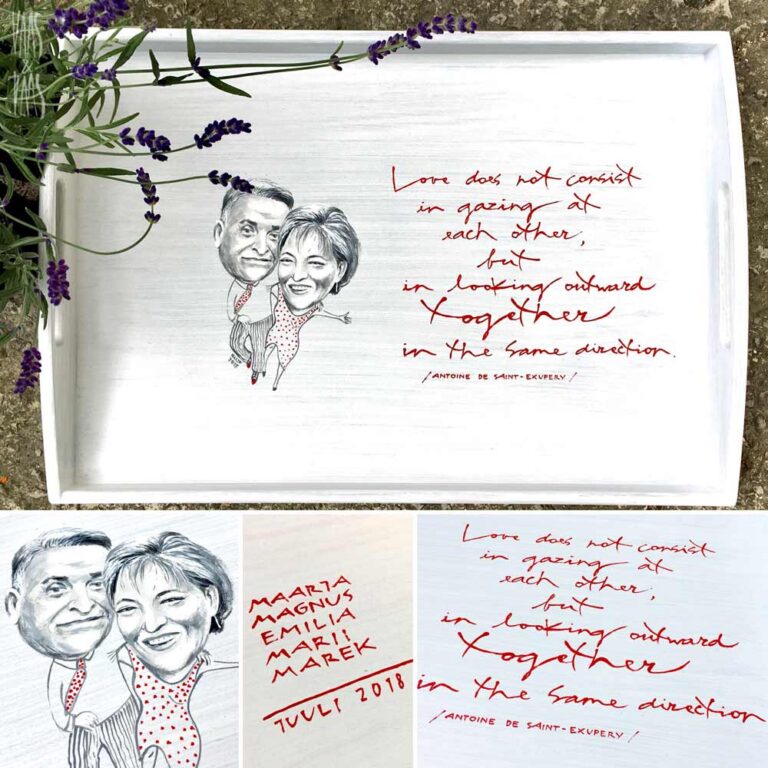 Love does not consist
in gazing at
each other,
but
in looking outward
together
in the same direction.
/ANTOINE DE SAINT-EXUPERY/
MAARJA
MAGNUS
EMILIA
MARII
MAREK
JUULI 2018
Love does not consist
in gazing at
each other,
but
in looking outward
together
in the same direction
/ANTOINE DE SAINT-EXUPERY/